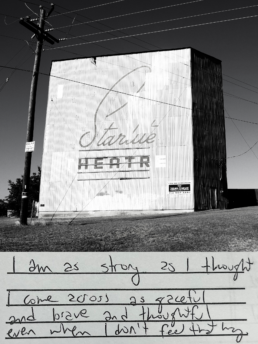 Starlite
HEATRE
I am as strong as I thought
I come across as graceful
and brave and thoughtful
even when I don't feel that way.